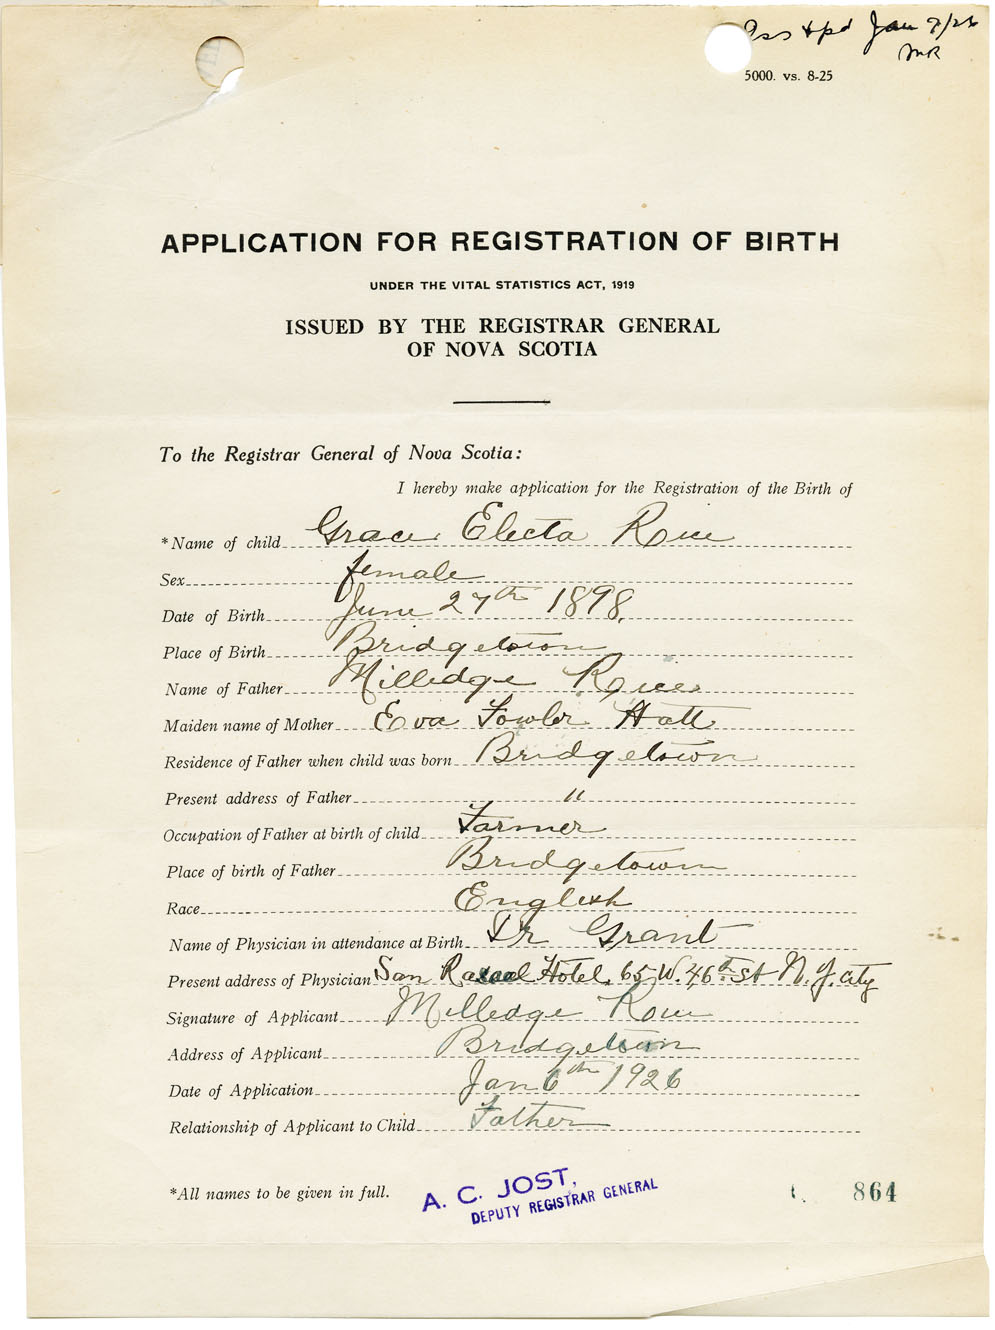 Jan 7/26
MR
5000. vs. 8-25
APPLICATION FOR REGISTRATION OF BIRTH
UNDER THE VITAL STATISTICS ACT, 1919
ISSUED BY THE REGISTRAR GENERAL
OF NOVA SCOTIA
To the Registrar General of Nova Scotia:
I hereby make application for the Registration of the Birth of
*Name of child Grace Electa Rice
Sex female
Date of Birth June 27th 1898.
Place of Birth Bridgetown
Name of Father Milledge Rice
Maiden name of Mother Eva Fowler Hatt
Residence of Father when child was born Bridgetown
Present address of Father "
Occupation of Father at birth of child Farmer
Place of birth of Father Bridgetown
Race English
Name of Physician in attendance at Birth Dr Grant
Present address of Physician San Hotel. 65 W. 46th St N.Y. City
Signature of Applicant Milledge Rice
Address of Applicant Bridgetown
Date of Application Jan 6th 1926
Relationship of Applicant to Child Father
*All names to be given in full.
A. C. JOST,
DEPUTY REGISTRAR GENERAL
864